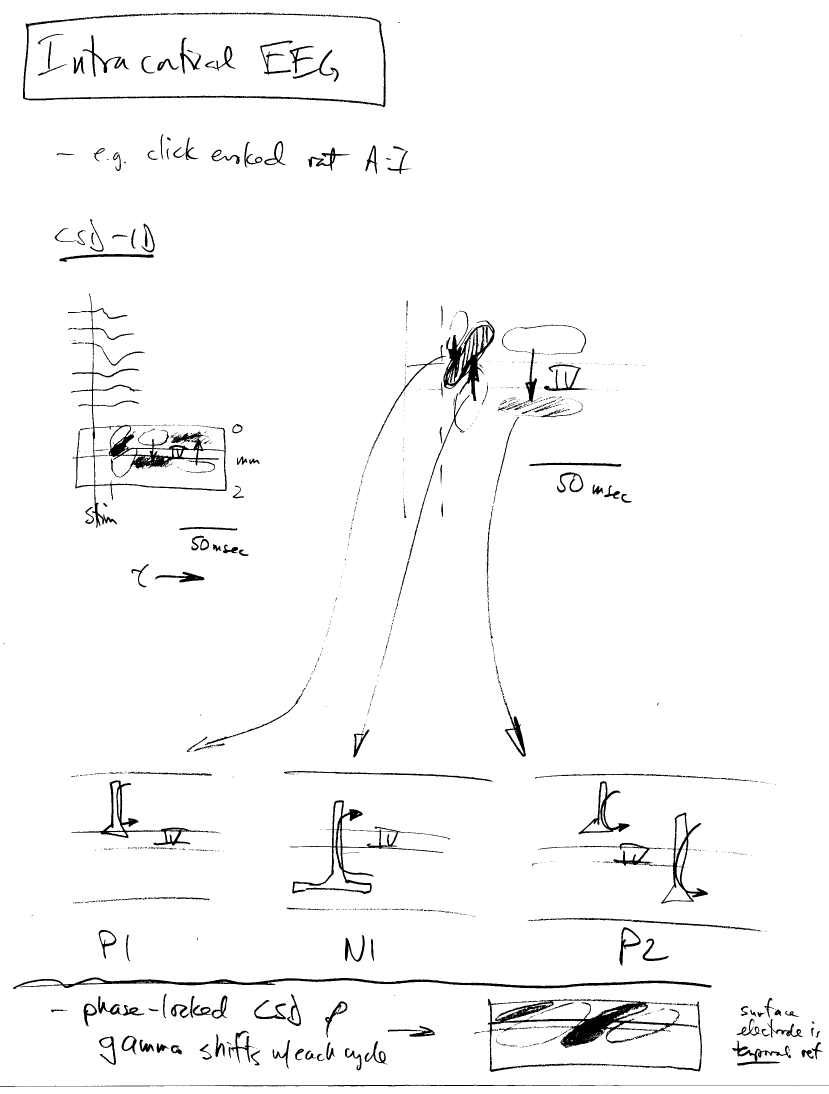 Intracortical EEG
- e.g. click evoked rat A-I
CSD-1D
0
IV
mm
2
stim
50 msec
τ →
IV
50 msec
IV
IV
IV
P1
N1
P2
- phase-locked CSD
gamma shifts w/each cycle
→
surface
electrode is
temporal ref